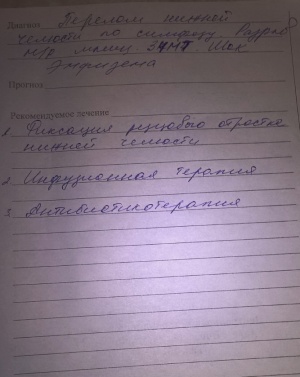 Диагноз Перелом нижней
челюсти по симфизу. Разрыв
м/р мышц ЗЧМТ. Шок
Эмфизема
Прогноз
Рекомендуемое лечение
1. Фиксация резцового отростка
нижней челюсти
2. Инфузионная терапия
3. Антибиотикотерапия